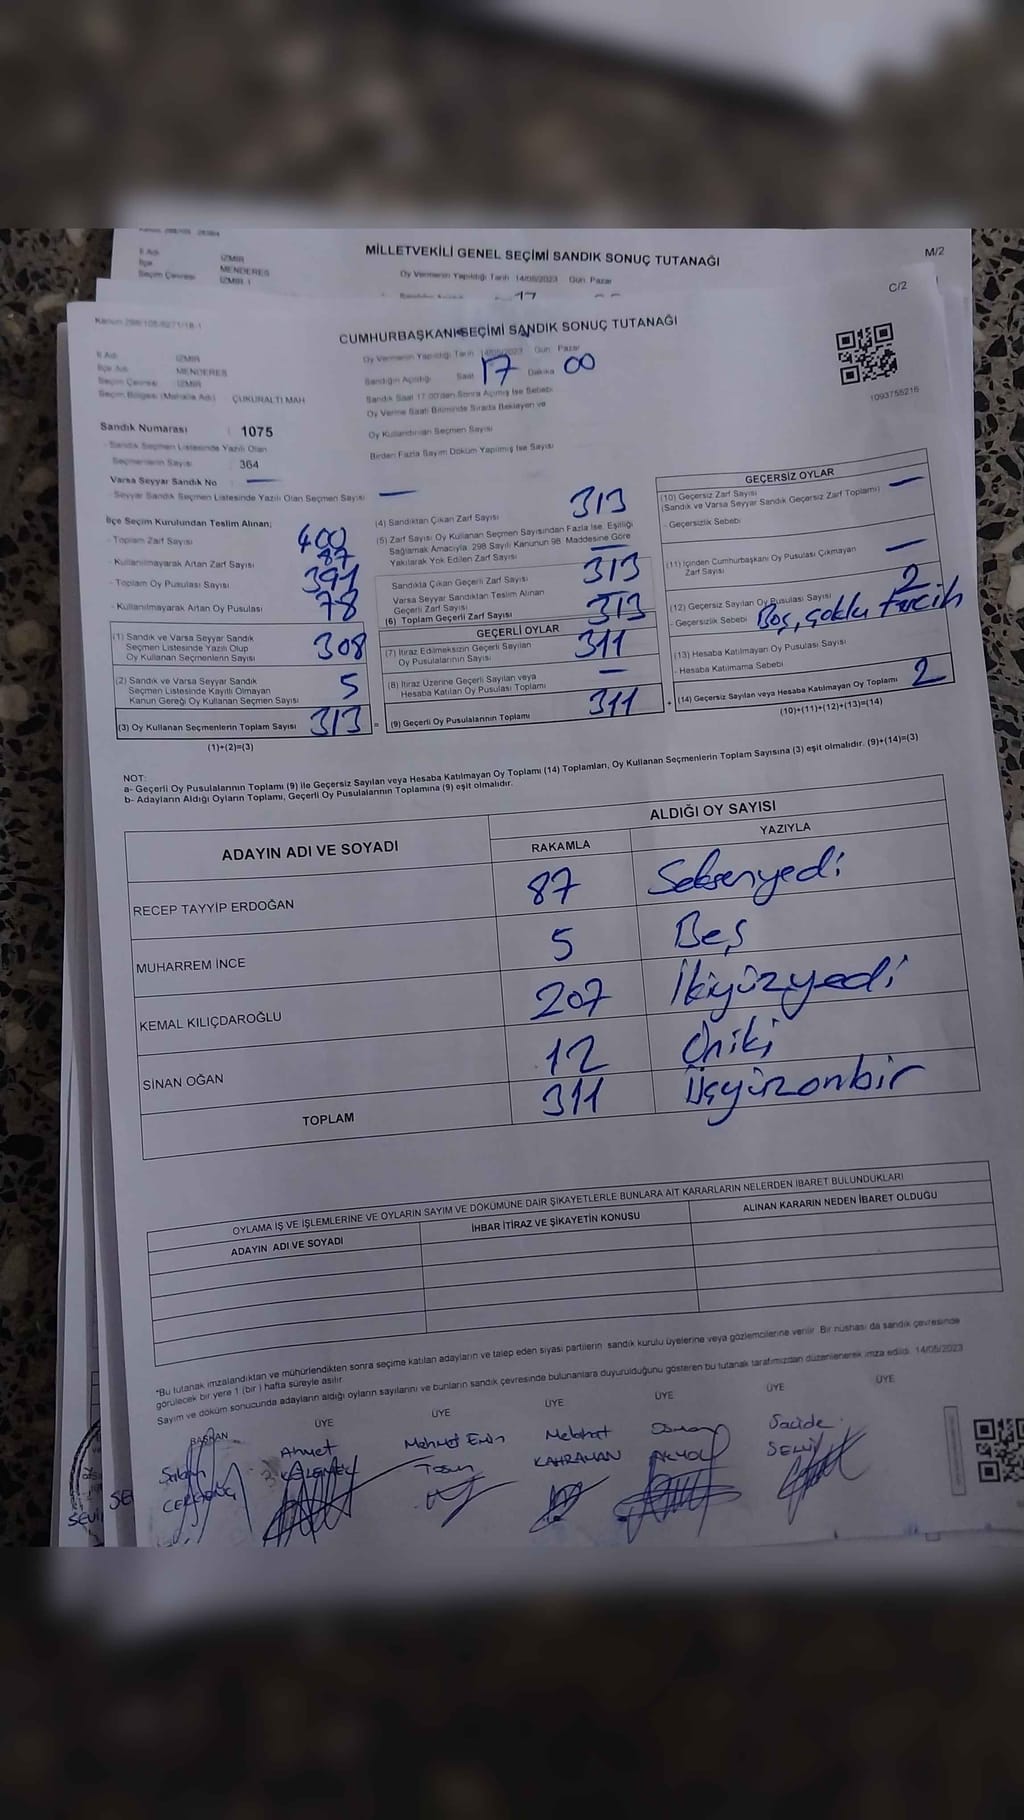 MİLLETVEKİLİ GENEL SEÇİMİ SANDIK SONUÇ TUTANAĞI
M/2
İl Adı İZMİR
İlçe MENDERES
Seçim Çevresi İZMİR 1
Oy Vermenin Yapıldığı Tarih 14/05/2023 Gün Pazar
C/2
CUMHURBAŞKANI SEÇİMİ SANDIK SONUÇ TUTANAĞI
İl Adı İZMİR
İlçe Adı MENDERES
Seçim Çevresi İZMİR
Seçim Bölgesi (Mahalle Adı) ÇUKURALTI MAH
Oy Vermenin Yapıldığı Tarih 14/05/2023 Gün Pazar
Sandığın Açıldığı Saat 17 Dakika 00
Sandık Saat 17.00'den Sonra Açılmış İse Sebebi
Oy Verme Saati Bitiminde Sırada Bekleyen ve
Oy Kullandırılan Seçmen Sayısı
Birden Fazla Sayım Döküm Yapılmış İse Sayısı
1093755216
Sandık Numarası : 1075
- Sandık Seçmen Listesinde Yazılı Olan
Seçmenlerin Sayısı : 364
Varsa Seyyar Sandık No —
- Seyyar Sandık Seçmen Listesinde Yazılı Olan Seçmen Sayısı —
İlçe Seçim Kurulundan Teslim Alınan;
- Toplam Zarf Sayısı 400
- Kullanılmayarak Artan Zarf Sayısı 87
- Toplam Oy Pusulası Sayısı 391
- Kullanılmayarak Artan Oy Pusulası 78
(1) Sandık ve Varsa Seyyar Sandık
Seçmen Listesinde Yazılı Olup
Oy Kullanan Seçmenlerin Sayısı 308
(2) Sandık ve Varsa Seyyar Sandık
Seçmen Listesinde Kayıtlı Olmayan
Kanun Gereği Oy Kullanan Seçmen Sayısı 5
(3) Oy Kullanan Seçmenlerin Toplam Sayısı 313 =
(1)+(2)=(3)
(4) Sandıktan Çıkan Zarf Sayısı 313
(5) Zarf Sayısı Oy Kullanan Seçmen Sayısından Fazla İse, Eşitliği
Sağlamak Amacıyla, 298 Sayılı Kanunun 98. Maddesine Göre
Yakılarak Yok Edilen Zarf Sayısı —
Sandıkta Çıkan Geçerli Zarf Sayısı 313
Varsa Seyyar Sandıktan Teslim Alınan
Geçerli Zarf Sayısı —
(6) Toplam Geçerli Zarf Sayısı 313
GEÇERLİ OYLAR
(7) İtiraz Edilmeksizin Geçerli Sayılan
Oy Pusulalarının Sayısı 311
(8) İtiraz Üzerine Geçerli Sayılan veya
Hesaba Katılan Oy Pusulası Toplamı —
(9) Geçerli Oy Pusulalarının Toplamı 311 +
GEÇERSİZ OYLAR
(10) Geçersiz Zarf Sayısı
(Sandık ve Varsa Seyyar Sandık Geçersiz Zarf Toplamı) —
- Geçersizlik Sebebi
(11) İçinden Cumhurbaşkanı Oy Pusulası Çıkmayan
Zarf Sayısı —
(12) Geçersiz Sayılan Oy Pusulası Sayısı 2
- Geçersizlik Sebebi Boş, çoklu tercih
(13) Hesaba Katılmayan Oy Pusulası Sayısı
- Hesaba Katılmama Sebebi
(14) Geçersiz Sayılan veya Hesaba Katılmayan Oy Toplamı 2
(10)+(11)+(12)+(13)=(14)
NOT:
a- Geçerli Oy Pusulalarının Toplamı (9) ile Geçersiz Sayılan veya Hesaba Katılmayan Oy Toplamı (14) Toplamları, Oy Kullanan Seçmenlerin Toplam Sayısına (3) eşit olmalıdır. (9)+(14)=(3)
b- Adayların Aldığı Oyların Toplamı, Geçerli Oy Pusulalarının Toplamına (9) eşit olmalıdır.
ADAYIN ADI VE SOYADI
ALDIĞI OY SAYISI
RAKAMLA YAZIYLA
RECEP TAYYİP ERDOĞAN 87 Seksenyedi
MUHARREM İNCE 5 Beş
KEMAL KILIÇDAROĞLU 207 İkiyüzyedi
SİNAN OĞAN 12 Oniki
TOPLAM 311 Üçyüzonbir
OYLAMA İŞ VE İŞLEMLERİNE VE OYLARIN SAYIM VE DÖKÜMÜNE DAİR ŞİKAYETLERLE BUNLARA AİT KARARLARIN NELERDEN İBARET BULUNDUKLARI
ADAYIN ADI VE SOYADI
İHBAR İTİRAZ VE ŞİKAYETİN KONUSU
ALINAN KARARIN NEDEN İBARET OLDUĞU
*Bu tutanak imzalandıktan ve mühürlendikten sonra seçime katılan adayların ve talep eden siyasi partilerin sandık kurulu üyelerine veya gözlemcilerine verilir. Bir nüshası da sandık çevresinde
görülecek bir yere 1 (bir) hafta süreyle asılır.
Sayım ve döküm sonucunda adayların aldığı oyların sayılarını ve bunların sandık çevresinde bulunanlara duyurulduğunu gösteren bu tutanak tarafımızdan düzenlenerek imza edildi. 14/05/2023
BAŞKAN ÜYE ÜYE ÜYE ÜYE ÜYE ÜYE
Ahmet
Mehmet Emin
Tosun
Melahat
KAHRAMAN
Osman
AKYOL
Sacide